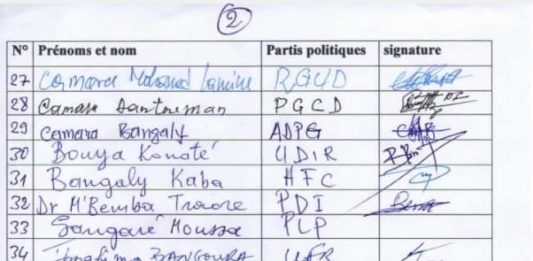 2
N° Prénoms et nom Partis politiques signature
27 Camara Mohamed Lamine RGUD
28 Camara Dantouman PGCD
29 Camara Bangaly ADPG
30 Bouya Konaté UDIR
31 Bangaly Kaba HFC
32 Dr M'Bemba Traore PDI
33 Sangaré Moussa PLP
34 Ibrahima BANGOURA UFR